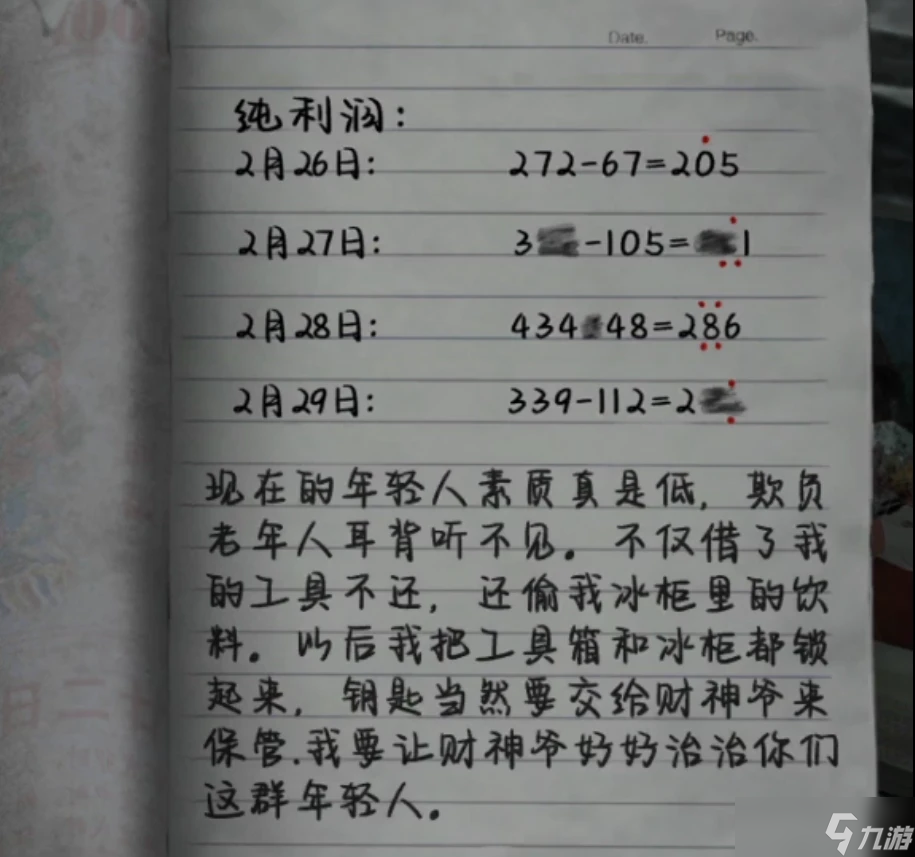 Date. Page.
纯利润:
2月26日: 272-67=205
2月27日: 3 -105= 1
2月28日: 434 48=286
2月29日: 339-112=2
现在的年轻人素质真是低, 欺负
老年人耳背听不见。不仅借了我
的工具不还, 还偷我冰柜里的饮
料。以后我把工具箱和冰柜都锁
起来, 钥匙当然要交给财神爷来
保管.我要让财神爷好好治治你们
这群年轻人。
九游